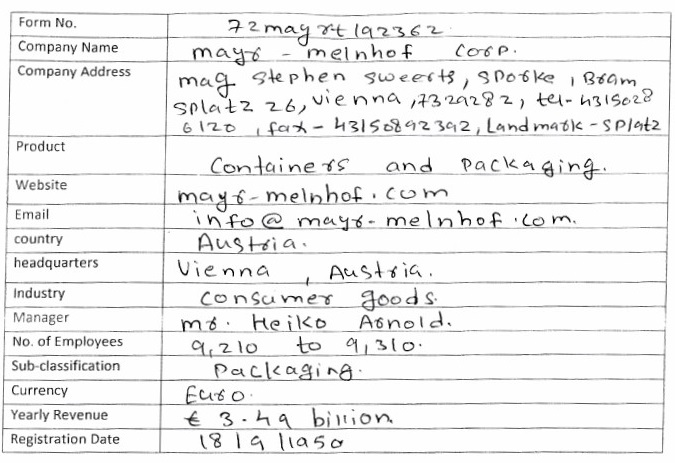 Form No. 72mayrt192362.
Company Name mayr - melnhof Corp.
Company Address mag Stephen sweerts, sporke, Bram
splatz 26, vienna, 7329282, tel-4315028
6120, fax-43150892392, Landmark-splatz
Product Containers and packaging.
Website mayr-melnhof.com
Email info@mayr-melnhof.com.
country Austria.
headquarters Vienna, Austria.
Industry consumer goods.
Manager mr. Heiko Arnold.
No. of Employees 9,210 to 9,310.
Sub-classification Packaging.
Currency Euro.
Yearly Revenue € 3.49 billion
Registration Date 18/9/1950